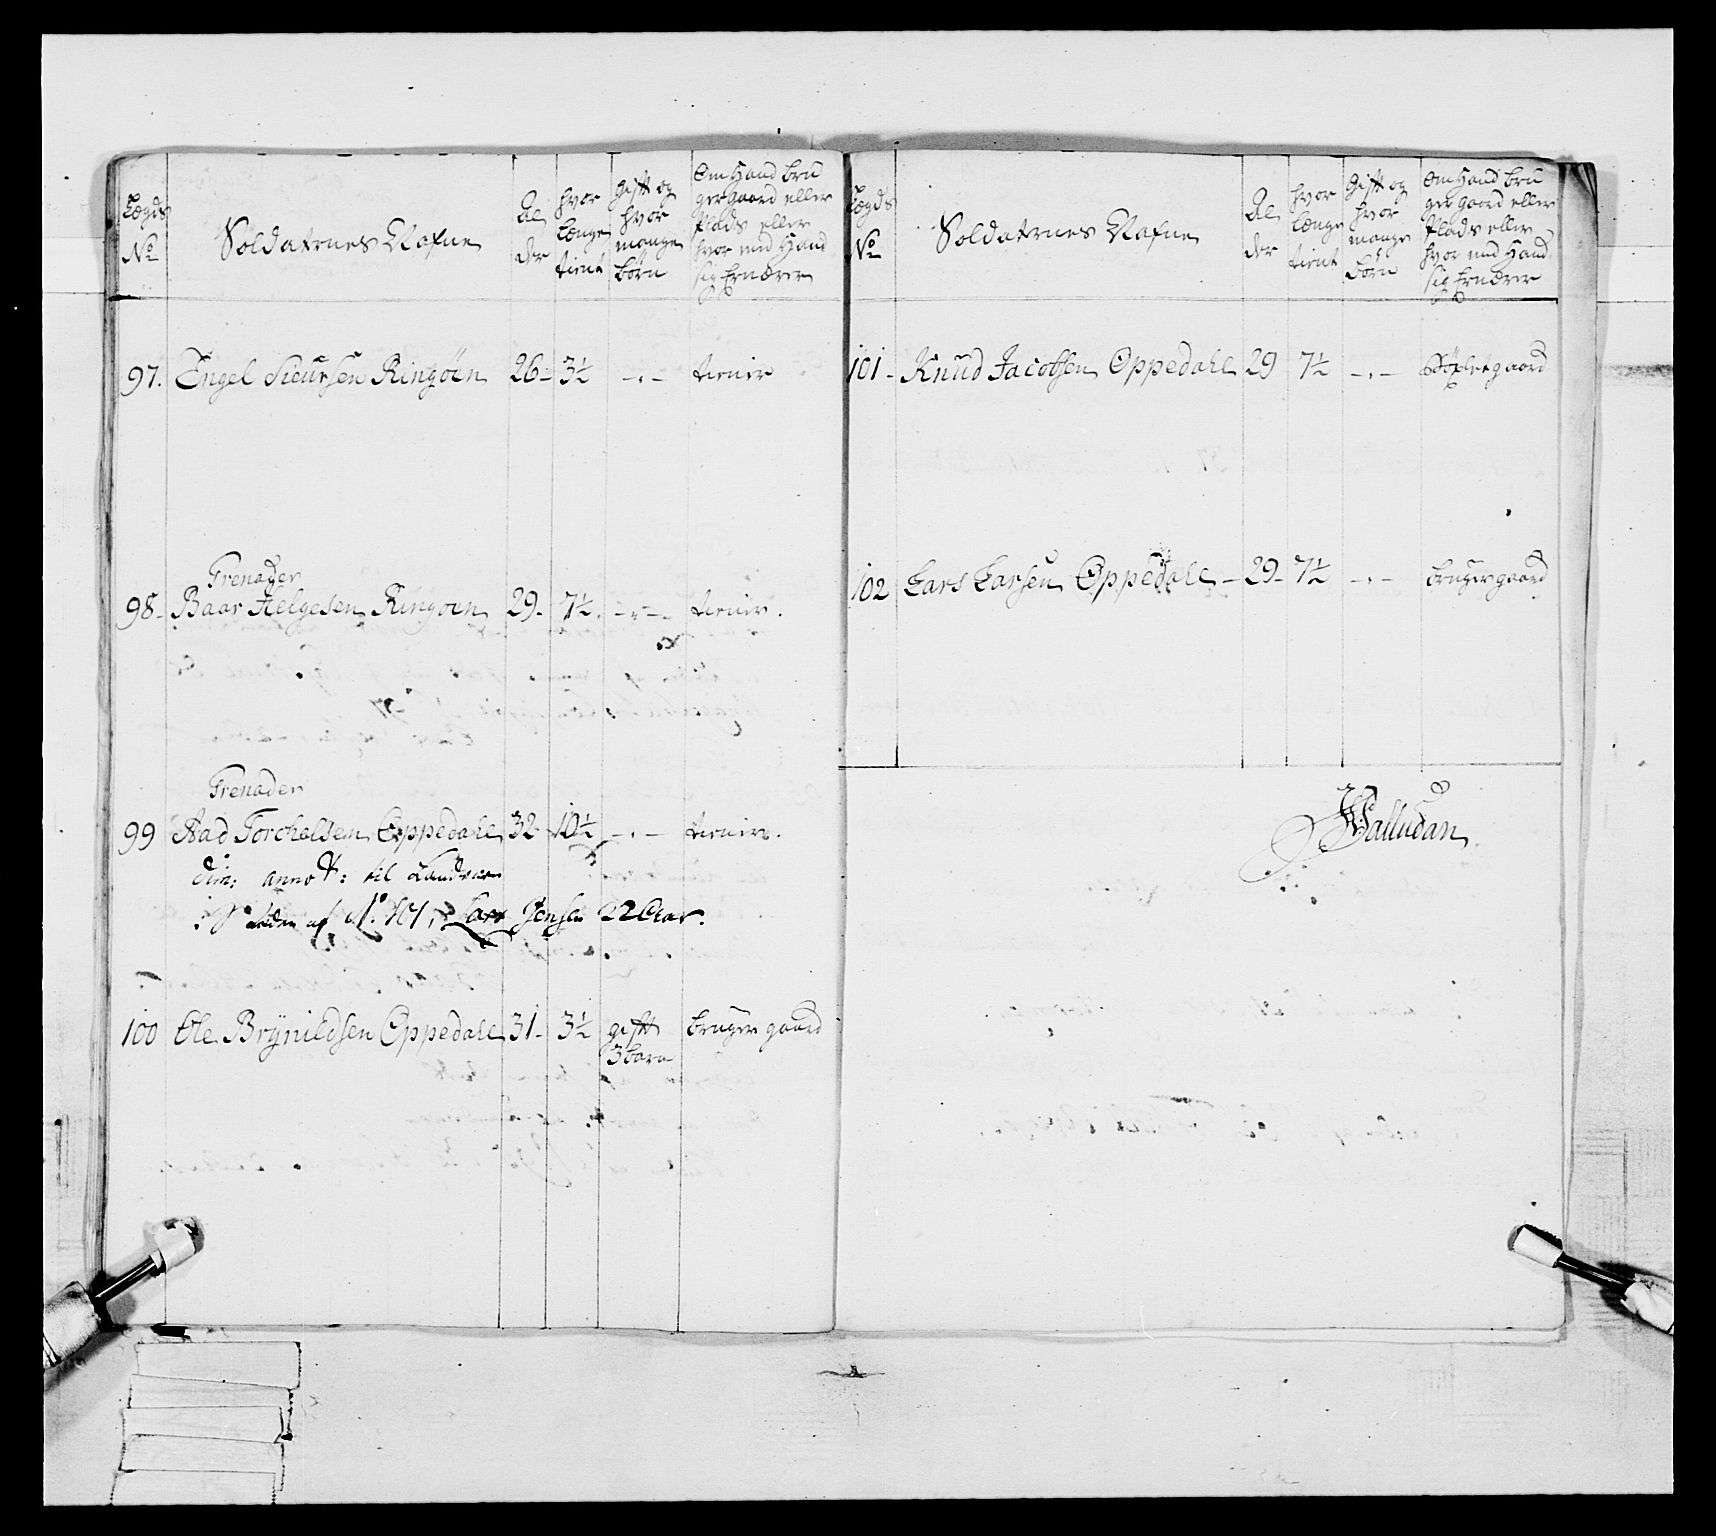 Lægds No
Soldaternes Nafne
Al der
hvor Længe tient
Gift og hvor mange børn
Om Hand bru ger gaard eller Plads eller hvor med Hand sig Ernærer
97. Engel Sieursen Ringøen 26- 3½ -"- tiener
Grenader
98- Baar Helgesen Ringoen 29- 7½. -"- tiener.
Grenader
99 Aad Torchelsen Oppedahl 32 10½ -"- tiener.
dim: annot: til Landværn
af No. 101, Lars Jensen 22 Aar.
100 Ole Brynildsen Oppedahl 31- 3½ gift bruger gaard
3 børn
Lægds No
Soldaternes Nafne
Al der
hvor længe tient
Gift og hvor mange børn
Om Hand bru ger gaard eller Plads eller hvor med Hand sig Ernærer
101- Knud Jacobsen Oppedahl 29 7½ -"- gaard
102 Lars Larsen Oppedahl- 29- 7½ -"- bruger gaard
Palludan